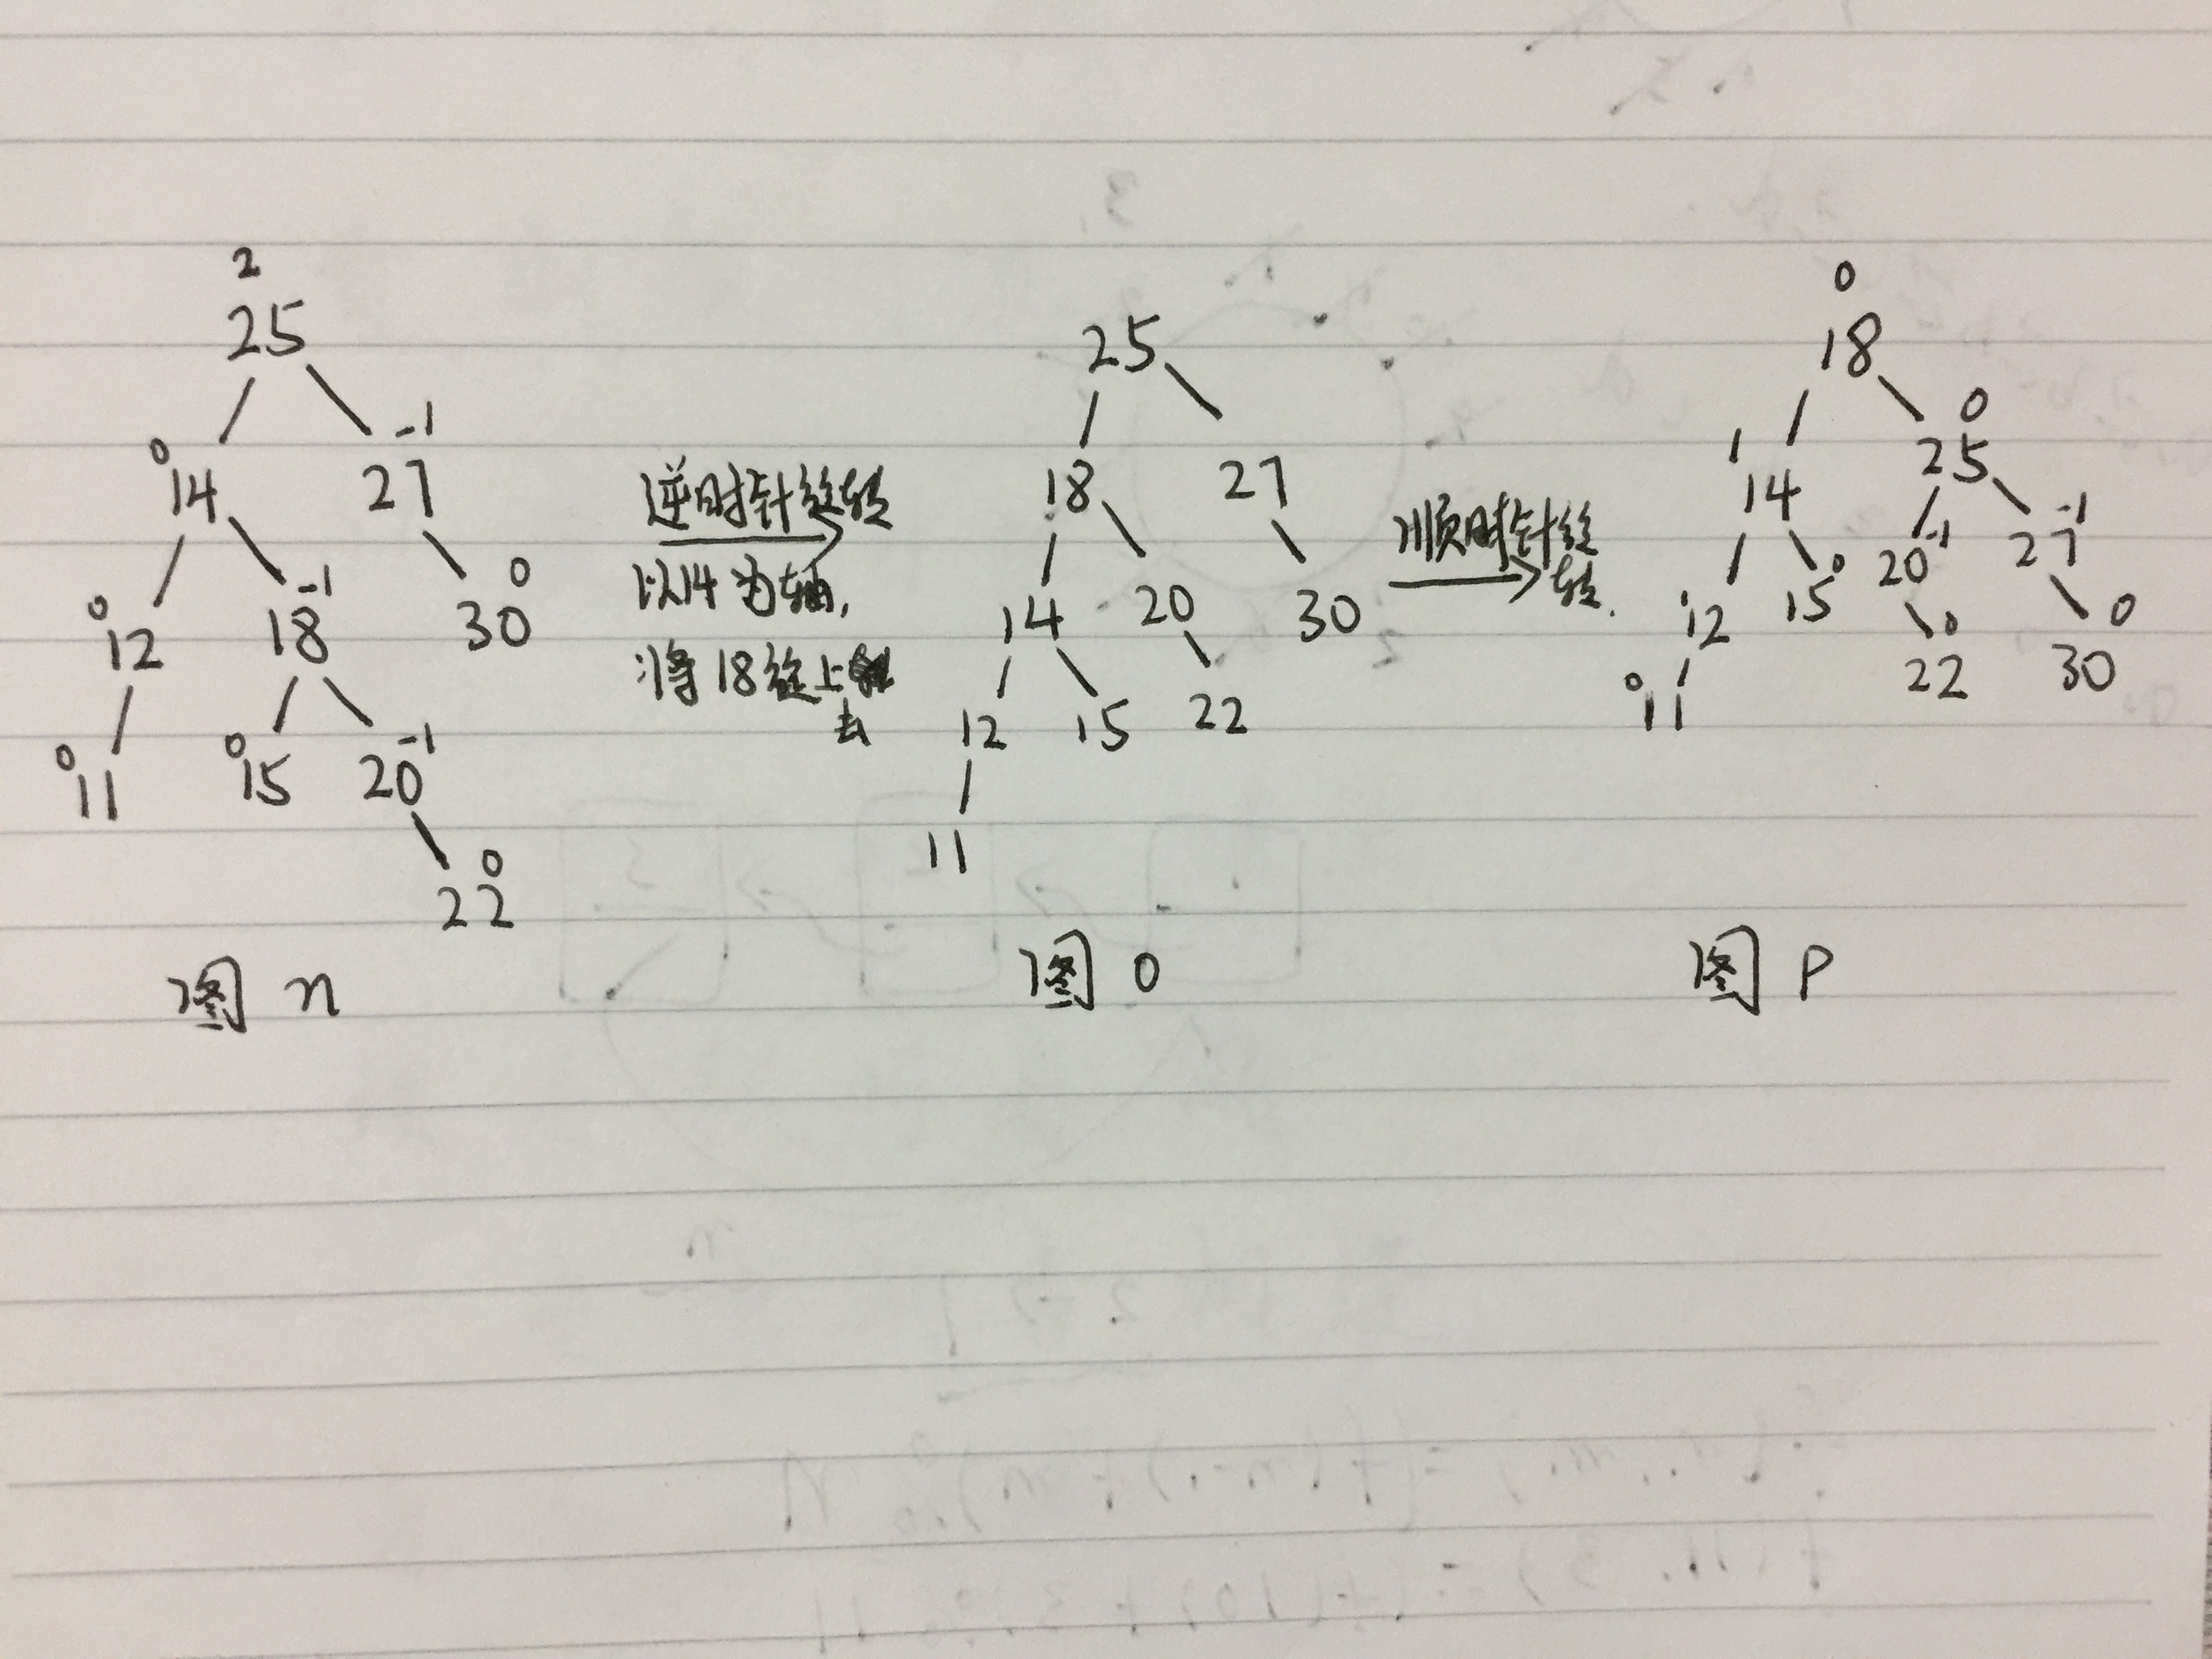 2
25
0
14
-1
27
0
12
-1
18
0
30
0
11
0
15
-1
20
0
22
图 n
逆时针旋转
以14为轴,
将18旋上
去
25
18
27
14
20
30
12
15
22
11
图 o
顺时针旋
转.
0
18
1
14
0
25
1
12
0
15
-1
20
-1
27
0
11
0
22
0
30
图 P